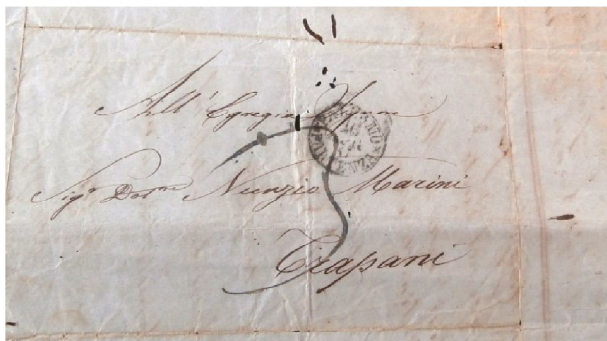 All' Egregio Signore
Sig.r Dott.re Nunzio Marini
Trapani